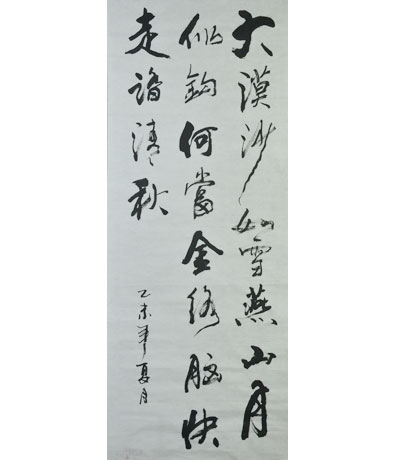 大漠沙如雪燕山月
似鈎何當金络脑快
走踏清秋
乙未年夏月